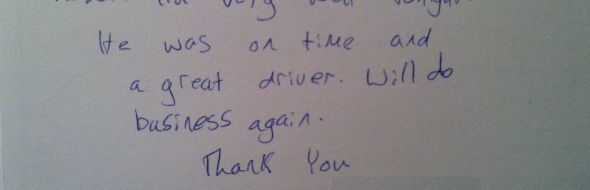 very
He was on time and
a great driver. Will do
business again.
Thank You